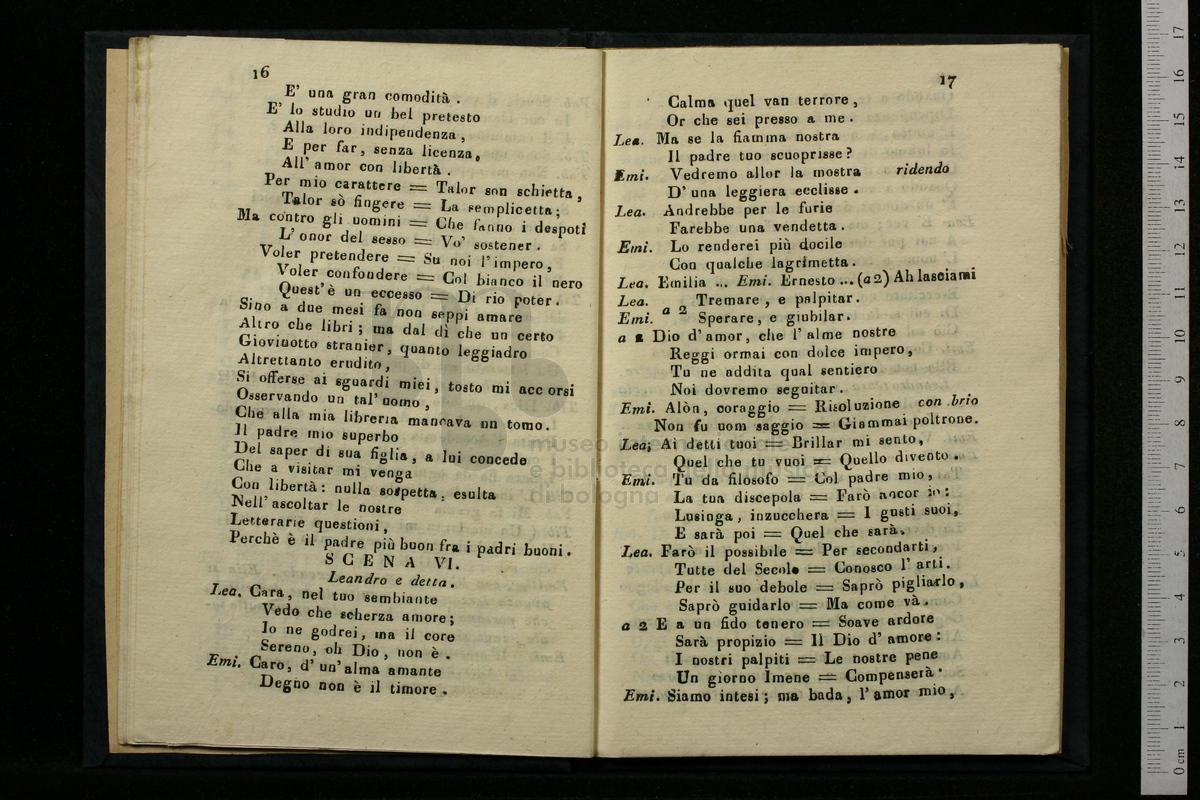 16
E' una gran comodità .
E' lo studio un bel pretesto
Alla loro indipendenza ,
E per far, senza licenza,
All' amor con libertà .
Per mio carattere = Talor son schietta ,
Talor sò fingere = La semplicetta ;
Ma contro gli uomini = Che fanno i despoti
L' onor del sesso = Vo' sostener .
Voler pretendere = Su noi l' impero ,
Voler confondere = Col bianco il nero
Quest' è un eccesso = Di rio poter .
Sino a due mesi fa non seppi amare
Altro che libri ; ma dal dì che un certo
Giovinotto stranier, quanto leggiadro
Altrettanto erudito,
Si offerse ai sguardi miei, tosto mi accorsi
Osservando un tal' uomo ,
Che alla mia libreria mancava un tomo.
Il padre mio superbo
Del saper di sua figlia, a lui concede
Che a visitar mi venga
Con libertà: nulla sospetta, esulta
Nell' ascoltar le nostre
Letterarie questioni,
Perchè è il padre più buon fra i padri buoni.
SCENA VI.
Leandro e detta.
Lea. Cara, nel tuo sembiante
Vedo che scherza amore;
Io ne godrei, ma il core
Sereno, oh Dio, non è .
Emi. Caro, d' un' alma amante
Degno non è il timore .
17
Calma quel van terrore,
Or che sei presso a me .
Lea. Ma se la fiamma nostra
Il padre tuo scuoprisse?
Emi. Vedremo allor la mostra ridendo
D' una leggiera ecclisse .
Lea. Andrebbe per le furie
Farebbe una vendetta .
Emi. Lo renderei più docile
Con qualche lagrimetta.
Lea. Emilia ... Emi. Ernesto ... (a 2) Ah lasciami
Lea. Tremare , e palpitar.
Emi. a 2 Sperare, e giubilar.
a 2 Dio d' amor, che l' alme nostre
Reggi ormai con dolce impero,
Tu ne addita qual sentiero
Noi dovremo seguitar.
Emi. Alòn, coraggio = Risoluzione con brio
Non fu uom saggio = Giammai poltrone.
Lea; Ai detti tuoi = Brillar mi sento,
Quel che tu vuoi = Quello divento .
Emi. Tu da filosofo = Col padre mio,
La tua discepola = Farò ancor io:
Lusinga, inzucchera = I gusti suoi,
E sarà poi = Quel che sarà.
Lea. Farò il possibile = Per secondarti,
Tutte del Secolo = Conosco l' arti.
Per il suo debole = Saprò pigliarlo,
Saprò guidarlo = Ma come và.
a 2 E a un fido tenero = Soave ardore
Sarà propizio = Il Dio d' amore:
I nostri palpiti = Le nostre pene
Un giorno Imene = Compenserà.
Emi. Siamo intesi ; ma bada, l' amor mio,
museo internazionale
e biblioteca della musica
di bologna
0 cm 1 2 3 4 5 6 7 8 9 10 11 12 13 14 15 16 17